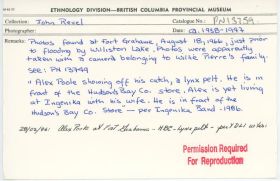 ETHNOLOGY DIVISION—BRITISH COLUMBIA PROVINCIAL MUSEUM
Collection: John Revel Catalogue No.: PN13759
Photographer: Date: ca. 1938-1947
Remarks: Photos found at Fort Grahame, August 18, 1966, just prior
to flooding by Williston Lake. Photos were apparently
taken with a camera belonging to Willie Pierre's family.
see: PN 13749
"Alex Poole showing off his catch, a lynx pelt. He is in front
of the Hudson's Bay Co. store. Alex is yet living at
Ingenika with his wife. He is in front of the
Hudson's Bay Co. Store — per Ingenika Band - 1986.
28/02/01 Alex Poole at Fort Grahame - HBC - Lynx pelt - per
Permission Required
For Reproduction